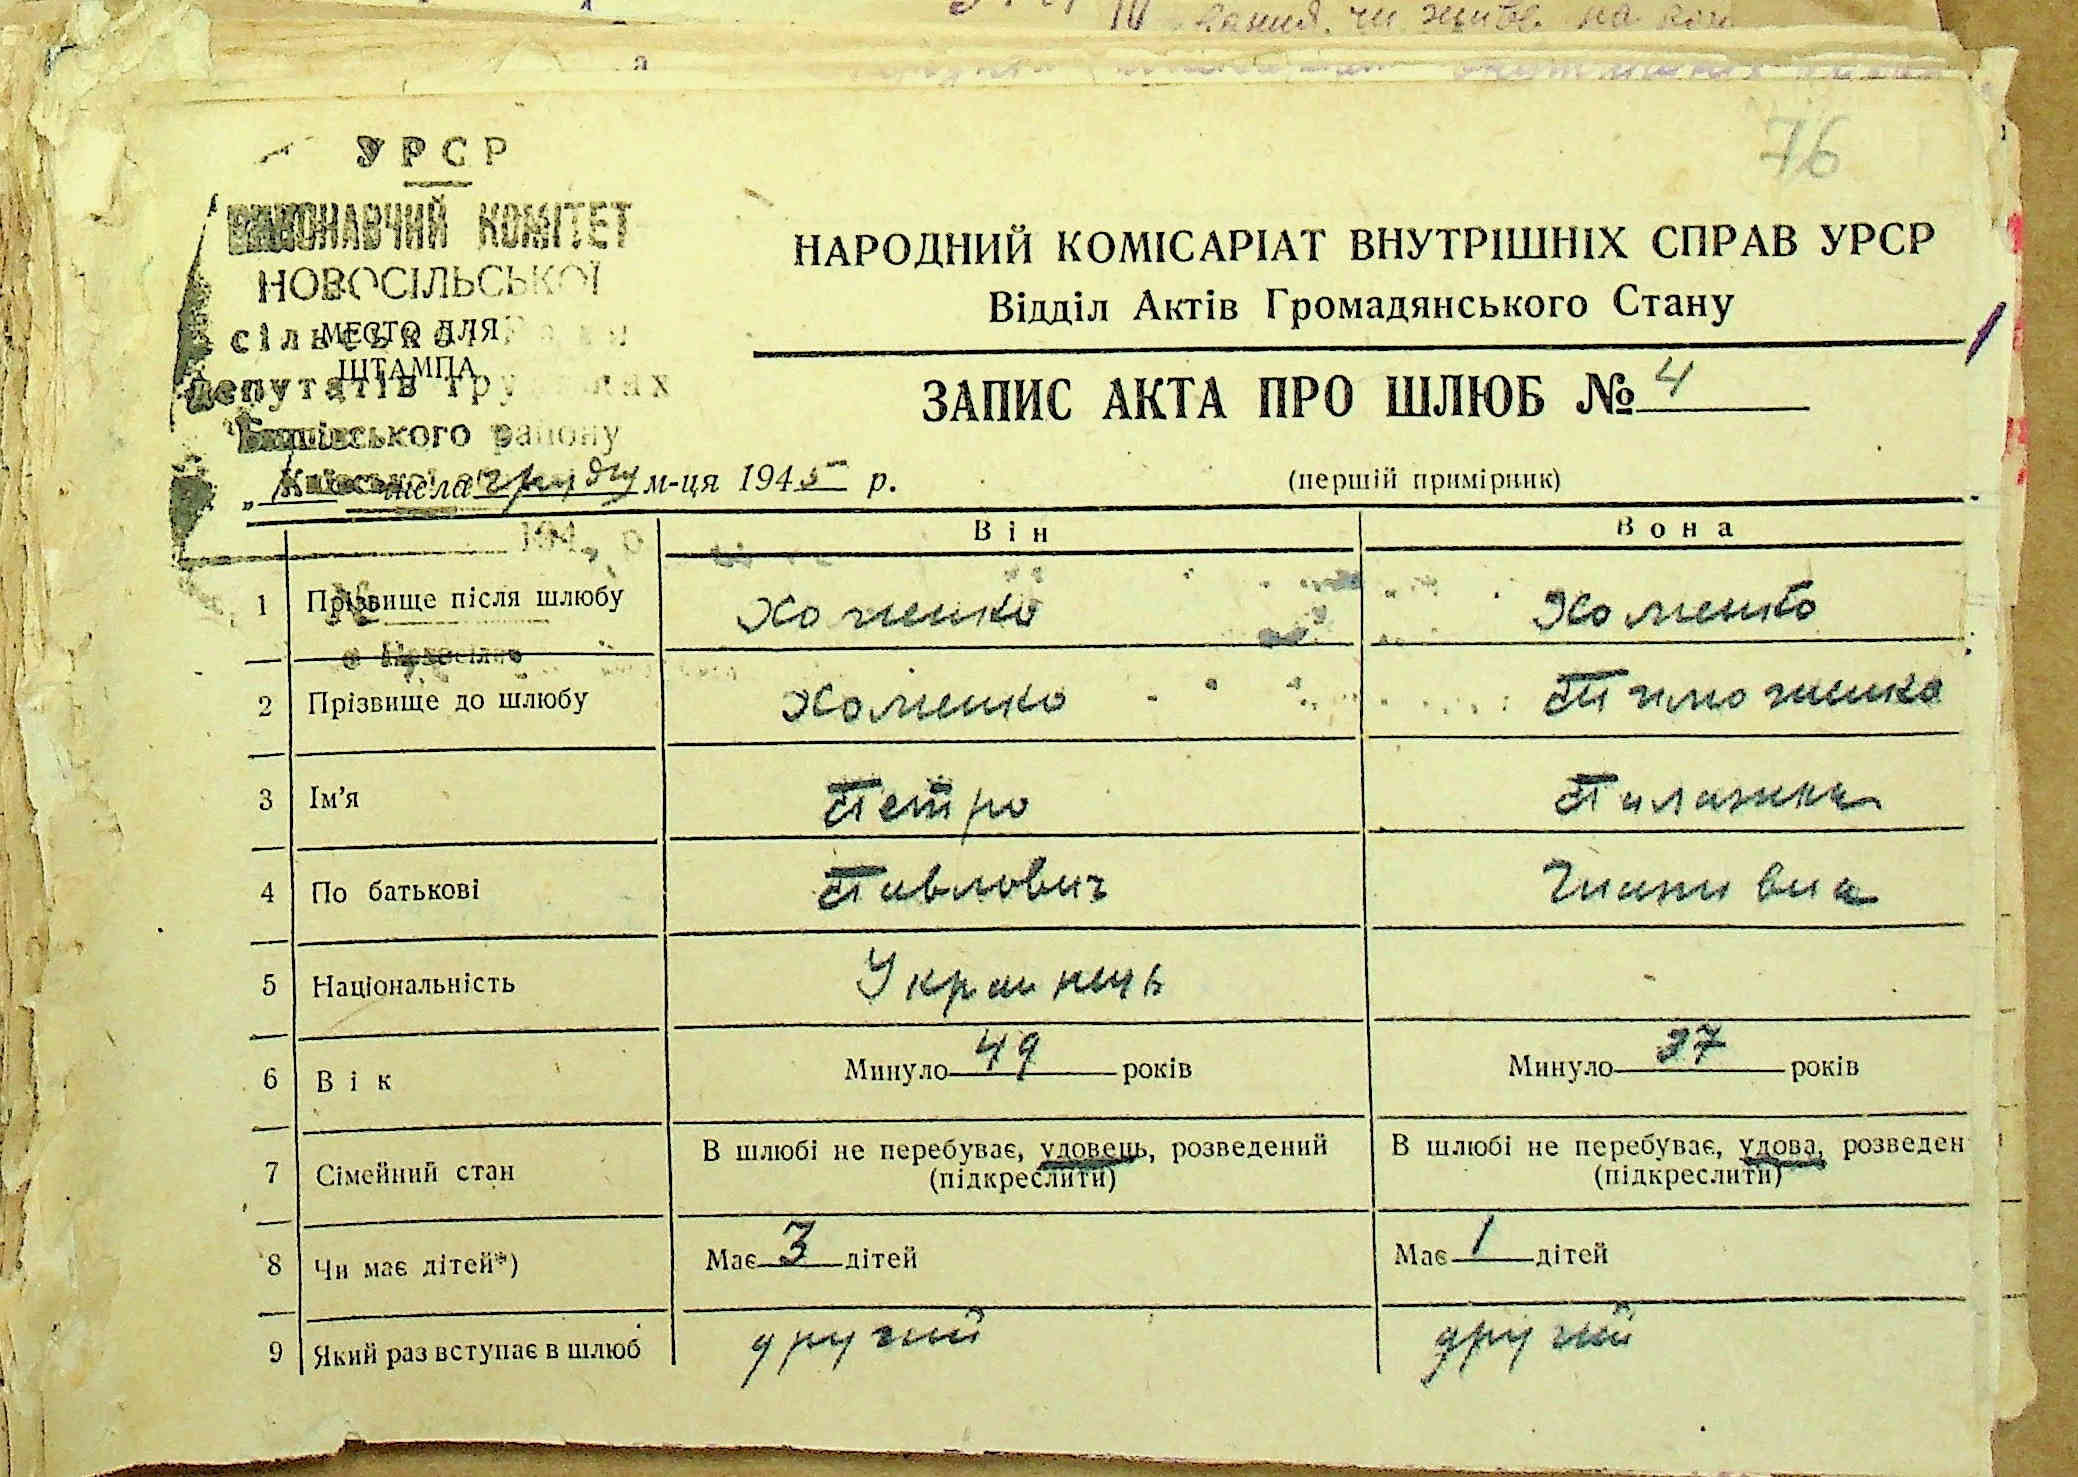 76
УРСР
ВИКОНАВЧИЙ КОМІТЕТ
НОВОСІЛЬСЬКОЇ
сільської Ради
МЕСТО ДЛЯ
ШТАМПА
депутатів трудящих
району
НАРОДНИЙ КОМІСАРІАТ ВНУТРІШНІХ СПРАВ УРСР
Відділ Актів Громадянського Стану
ЗАПИС АКТА ПРО ШЛЮБ № 4
числа грудня м-ця 1945 р.
(першій примірник)
194
Він Вона
1 Прізвище після шлюбу Хоменко Хоменко
2 Прізвище до шлюбу Хоменко Тимошенко
3 Ім'я Петро
4 По батькові Павлович
5 Національність Украинець
6 Вік Минуло 49 років Минуло 37 років
7 Сімейний стан В шлюбі не перебуває, удовець, розведений В шлюбі не перебуває, удова, розведен
(підкреслити) (підкреслити)
8 Чи має дітей*) Має 3 дітей Має 1 дітей
9 Який раз вступає в шлюб другий другий